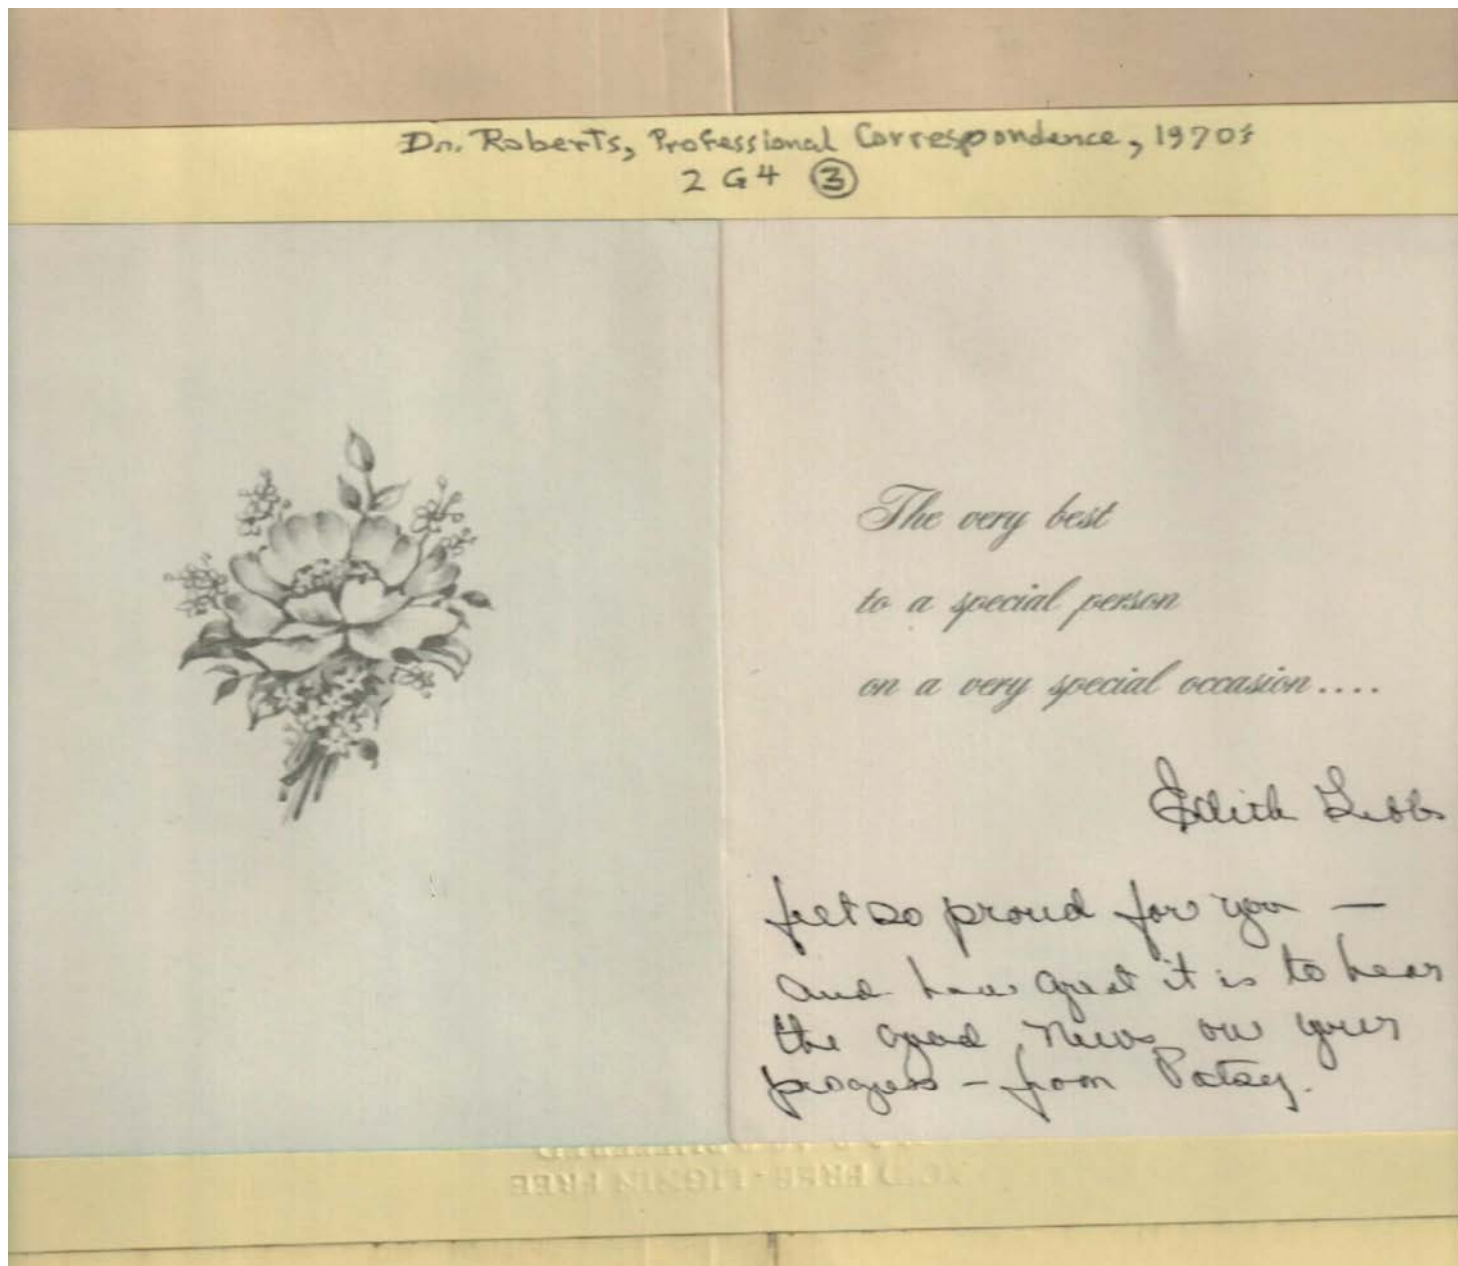 Dr. Roberts, Professional Correspondence, 1970s
2 G4 3
The very best
to a special person
on a very special occasion....
Edith
feel so proud for you —
and how great it is to hear
the good news on your
progress - from Patsy.
FREE - LIGNIN FREE